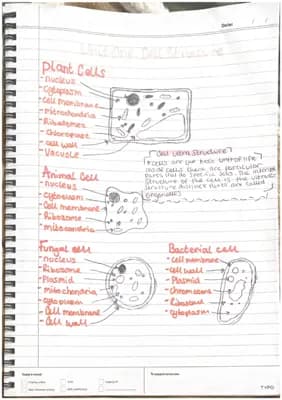 Date: / /
Unit One: Cell Structure
Plant Cells
- nucleus
- Cytoplasm
- Cell membrane
- Mitochondria
- Ribosomes
- Chloroplast
- cell wall
- Vacuole
Cell ultrastructure
Cells are the basic unit of life
inside cells there are particular
structure of the cell is the
structure distinct parts are called
organelles
Animal Cell
- nucleus
- cytoplasm
- Cell membrane
- Ribosome
- mitochondria
Fungal cell
- nucleus
- Ribosome
- Plasmid
- mitochondria
- cytoplasm
- Cell membrane
- Cell wall
Bacterial cell
- Cell membrane
- Cell wall
- Plasmid
- Chromosome
- Ribosome
- Cytoplasm
TYPO